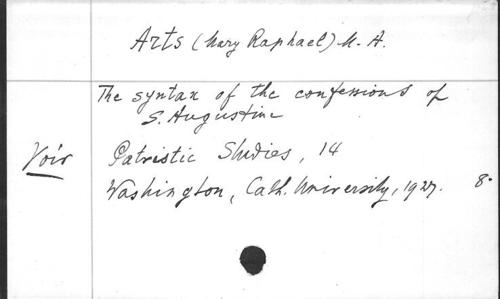 Arts (Mary Raphael) M. A.
The syntax of the confessions of
S. Augustine
Voir Patristic Studies, 14
Washington, Cath. University, 1927. 8°